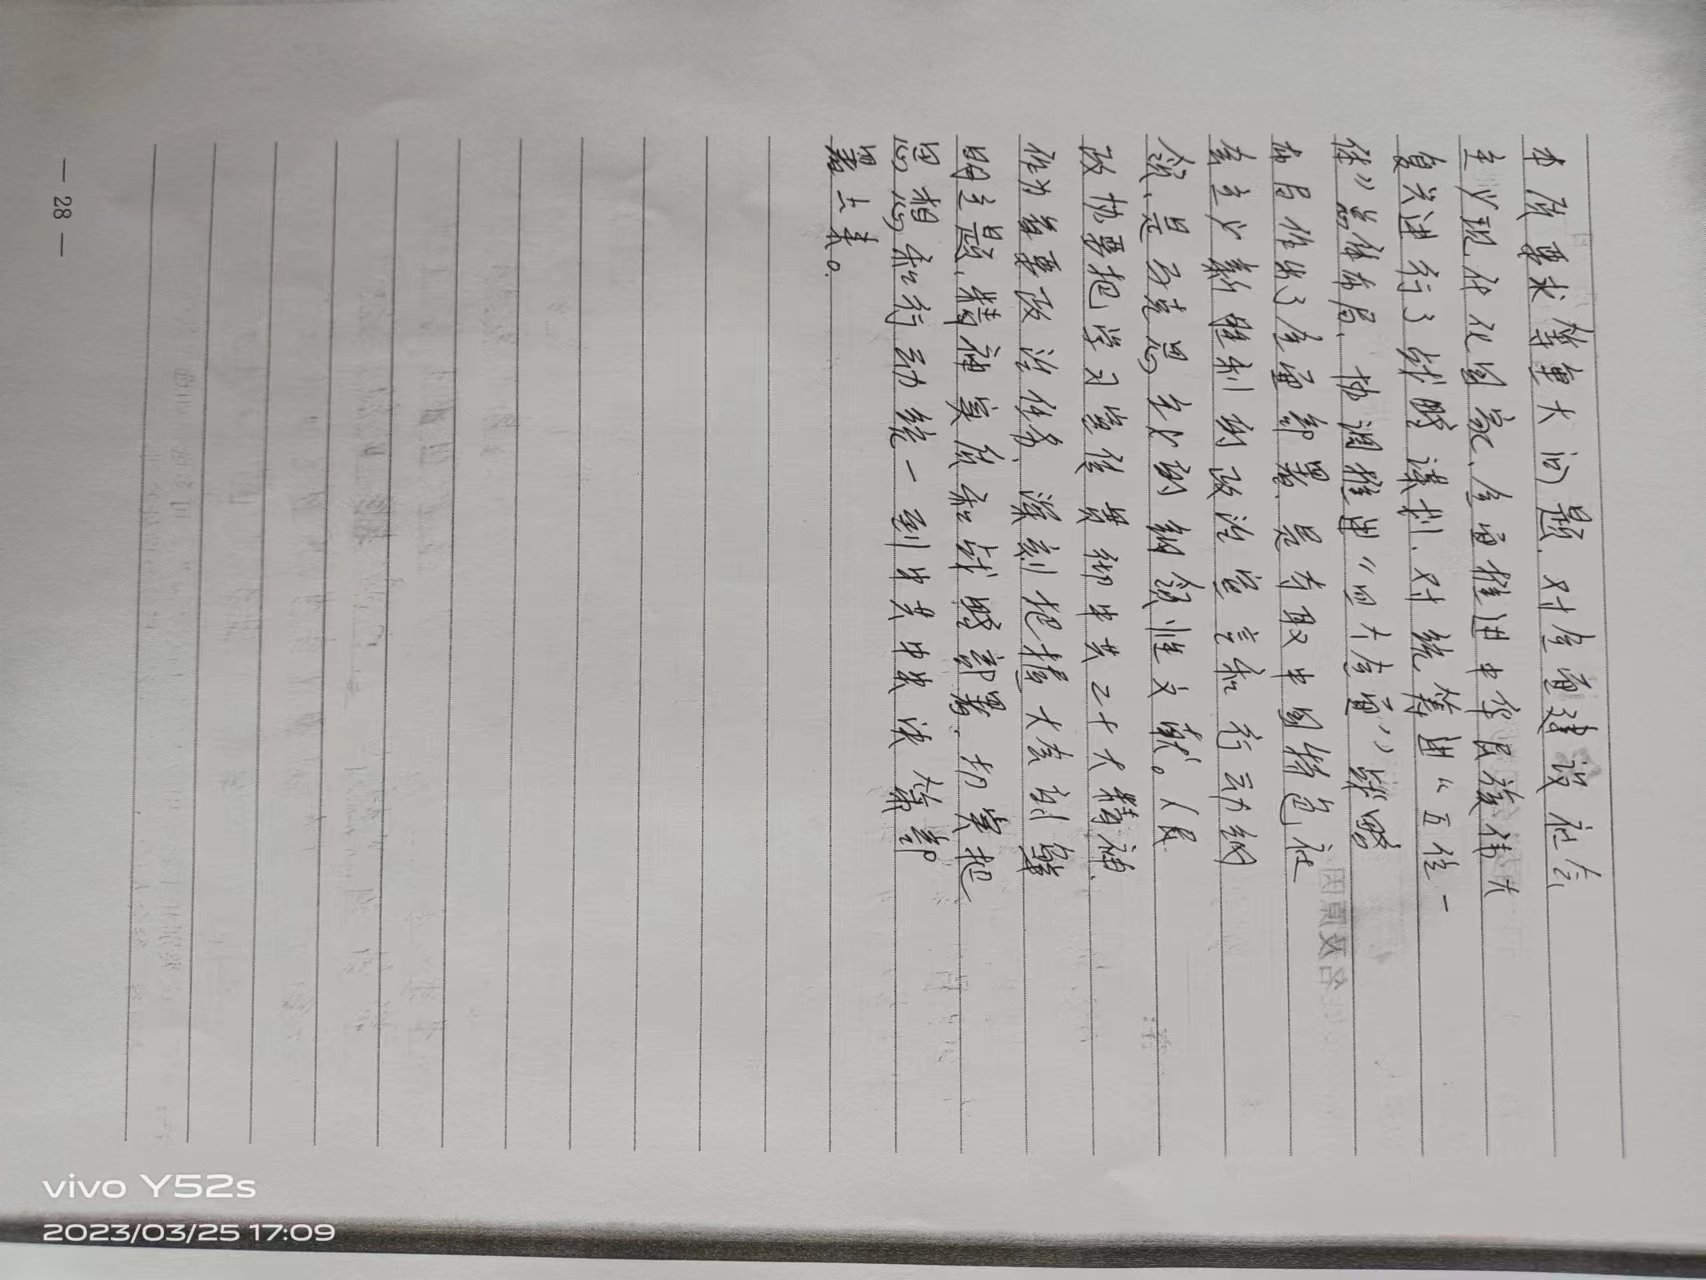 本质要求等重大问题、对全面建设社会
主义现代化国家、全面推进中华民族伟大
复兴进行了战略谋划、对统筹进“五位一
体”总体布局、协调推进“四大全面”战略
布局作出了全面部署、是夺取中国特色社
会主义新胜利的政治宣言和行动纲
领、是马克思主义的纲领性文献。人民
政协要把学习宣传贯彻中共二十大精神、
作为首要政治任务、深刻把握大会的鲜
明主题、精神实质和战略部署、切实把
思想和行动统一到中共中央决策部
署上来。
— 28 —
vivo Y52s
2023/03/25 17:09